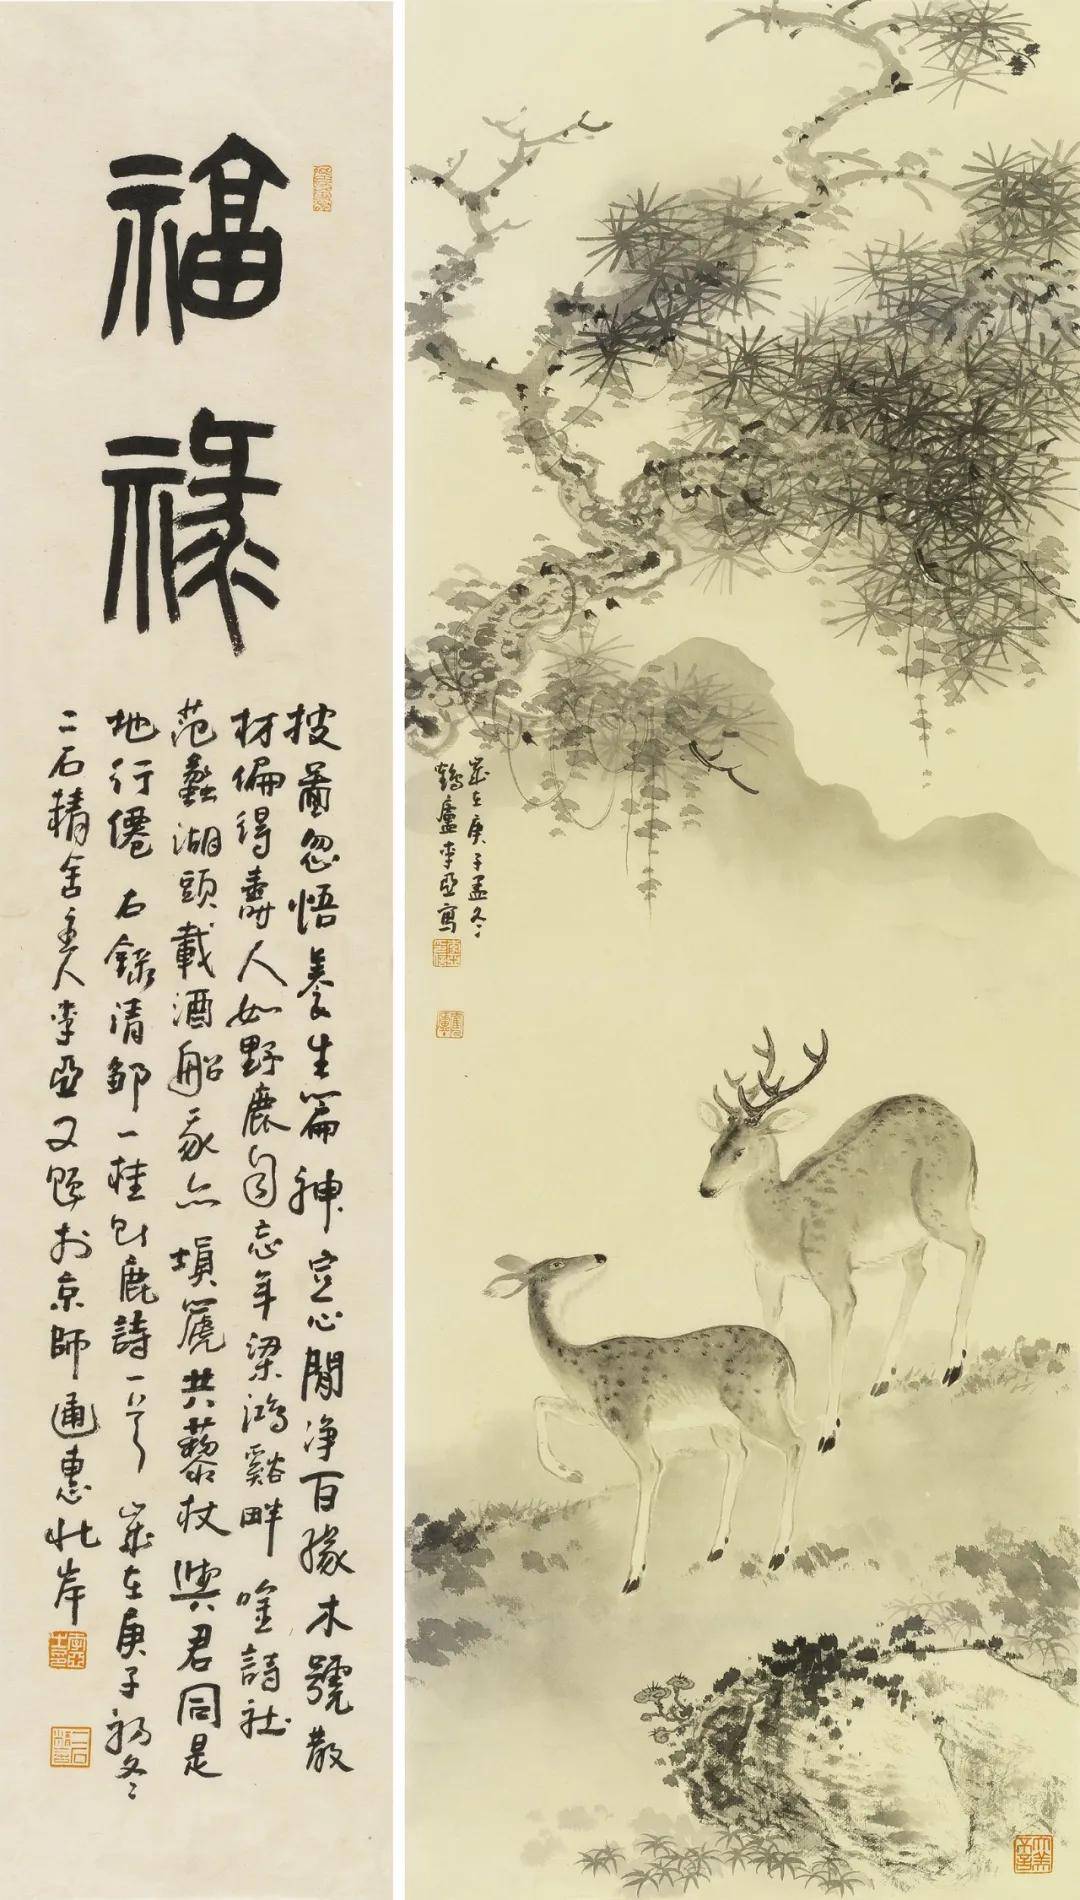 福祿
披圖忽悟養生篇神定心閒淨百緣木號散
材偏得壽人如野鹿自忘年梁鴻谿畔唫詩社
范蠡湖頭載酒船我亦塤篪共藜杖與君同是
地行僊 右錄清鄒一桂題鹿詩一首 歲在庚子初冬
二石精舍主人李亞又題於京師通惠北岸
歲在庚子孟冬
鶴廬李亞寫